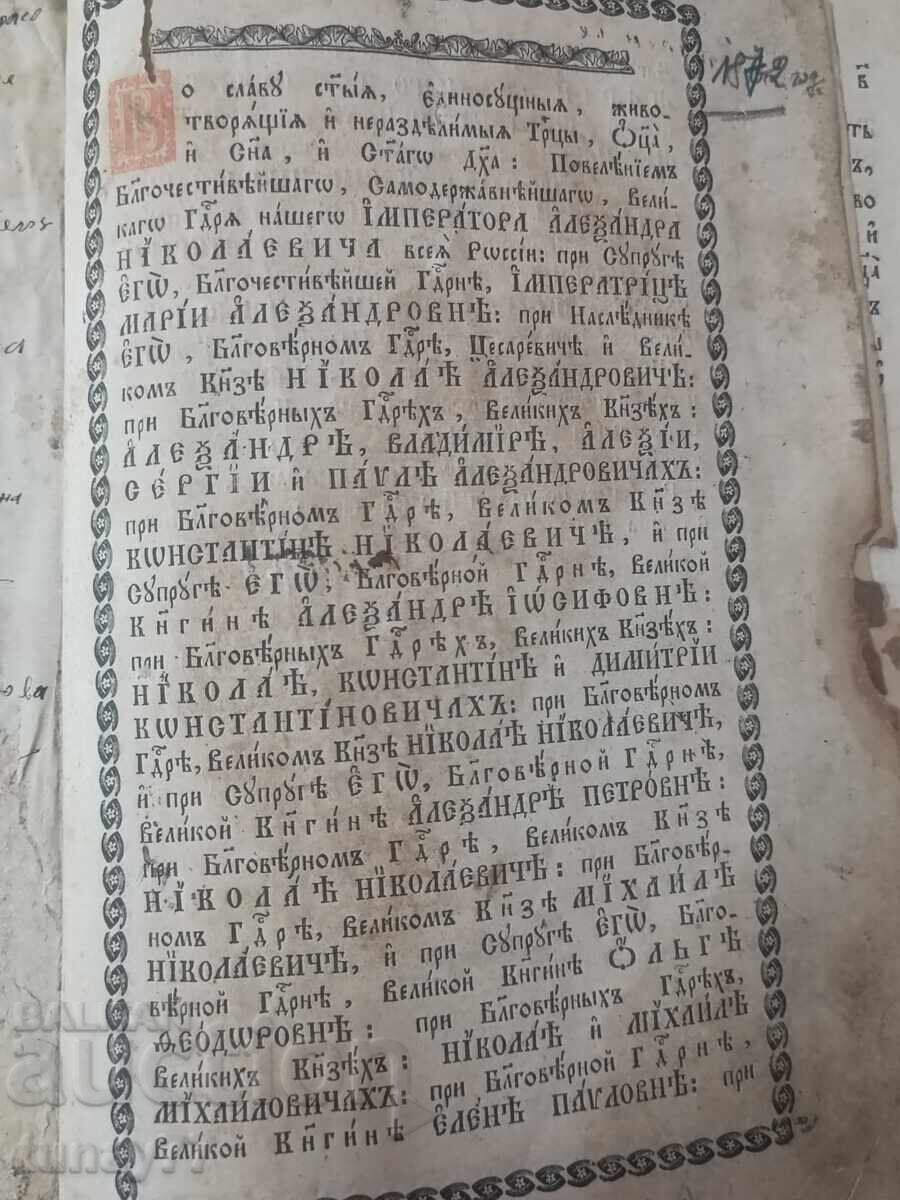 1872 год.
Во славу ст҃ыѧ, є҆диносущныѧ, живо-
творѧщіѧ и҆ нераздѣлимыѧ Трⷪ҇цы, Ѻ҆ц҃а̀,
и҆ Сн҃а, и҆ Ст҃агѡ Дх҃а: Повелѣ́нїемъ
Бл҃гочести́вѣйшагѡ, Самодержа́внѣйшагѡ, Вели́-
кагѡ Гдⷭ҇рѧ на́шегѡ И҆МПЕРА́ТОРА А҆ЛЕѮА́НДРА
НІКОЛА́ЕВИЧА всеѧ̀ Рѡссі́и: при Сꙋпрꙋ́гѣ
Є҆гѡ̀, Бл҃гочести́вѣйшей Гдⷭ҇рнѣ, И҆МПЕРАТРИ́ЦѢ
МАРІ́И А҆ЛЕѮА́НДРОВНѢ: при Наслѣ́дникѣ
Є҆гѡ̀, Бл҃говѣ́рномъ Гдⷭ҇рѣ, Цесаре́вичѣ и҆ Вели́-
комъ Кн҃зѣ НІКОЛА́Ѣ А҆ЛЕѮА́НДРОВИЧѢ:
при Бл҃говѣ́рныхъ Гдⷭ҇рѣхъ, Вели́кихъ Кн҃зѣхъ:
А҆ЛЕѮА́НДРѢ, ВЛАДИ́МІРѢ, А҆ЛЕѮІ́И,
СЕ́РГІИ и҆ ПА́ѴЛѢ А҆ЛЕѮА́НДРОВИЧАХЪ:
при Бл҃говѣ́рномъ Гдⷭ҇рѣ, Вели́комъ Кн҃зѣ
КѠНСТАНТІ́НѢ НІКОЛА́ЕВИЧѢ, и҆ при
Сꙋпрꙋ́гѣ Є҆гѡ̀, Бл҃говѣ́рной Гдⷭ҇рнѣ, Вели́кой
Кн҃ги́нѣ А҆ЛЕѮА́НДРѢ І҆Ѡ́СИФОВНѢ:
при Бл҃говѣ́рныхъ Гдⷭ҇рѣхъ, Вели́кихъ Кн҃зѣхъ:
НІКОЛА́Ѣ, КѠНСТАНТІ́НѢ и҆ ДИМИ́ТРІИ
КѠНСТАНТІ́НОВИЧАХЪ: при Бл҃говѣ́рномъ
Гдⷭ҇рѣ, Вели́комъ Кн҃зѣ НІКОЛА́Ѣ НІКОЛА́ЕВИЧѢ,
и҆ при Сꙋпрꙋ́гѣ Є҆гѡ̀, Бл҃говѣ́рной Гдⷭ҇рнѣ,
Вели́кой Кн҃ги́нѣ А҆ЛЕѮА́НДРѢ ПЕТРО́ВНѢ:
при Бл҃говѣ́рномъ Гдⷭ҇рѣ, Вели́комъ Кн҃зѣ
НІКОЛА́Ѣ НІКОЛА́ЕВИЧѢ: при Бл҃говѣ́р-
номъ Гдⷭ҇рѣ, Вели́комъ Кн҃зѣ МІХАИ́ЛѢ
НІКОЛА́ЕВИЧѢ, и҆ при Сꙋпрꙋ́гѣ Є҆гѡ̀, Бл҃го-
вѣ́рной Гдⷭ҇рнѣ, Вели́кой Кн҃ги́нѣ Ѻ҆́ЛЬГѢ
Ѳ҆ЕОДѠ́РОВНѢ: при Бл҃говѣ́рныхъ Гдⷭ҇рѣхъ,
Вели́кихъ Кн҃зѣхъ: НІКОЛА́Ѣ и҆ МІХАИ́ЛѢ
МІХА́ЙЛОВИЧАХЪ: при Бл҃говѣ́рной Гдⷭ҇рнѣ,
Вели́кой Кн҃ги́нѣ Є҆ЛЕ́НѢ ПА́ѴЛОВНѢ: при
BALKAN
auction
kunay77